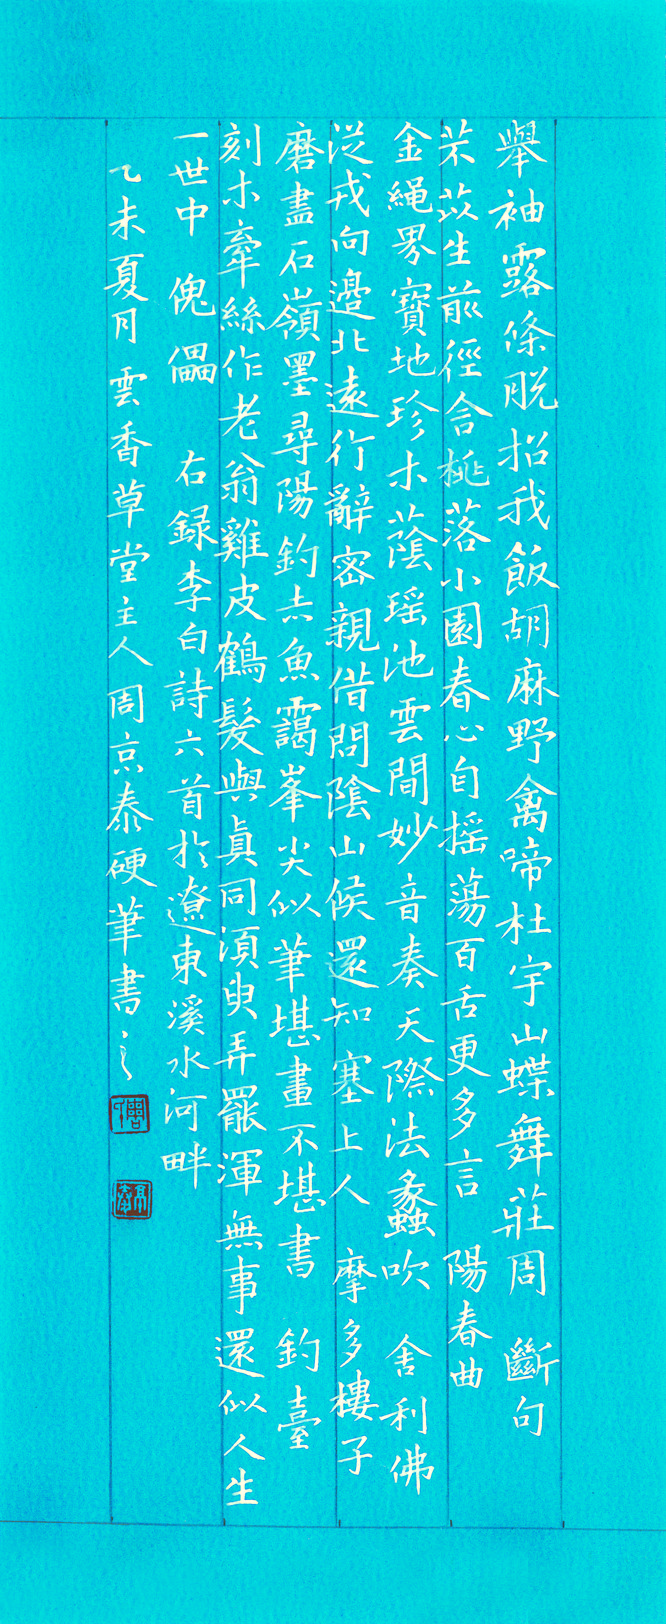 舉袖露條脫招我飯胡麻野禽啼杜宇山蝶舞莊周　斷句
芣苡生前徑含桃落小園春心自搖蕩百舌更多言　陽春曲
金繩界寶地珍木蔭瑶池雲間妙音奏天際法蠡吹　舍利佛
從戎向邊北遠行辭密親借問陰山候還知塞上人　摩多樓子
磨盡石嶺墨尋陽釣赤魚靄峯尖似筆堪畫不堪書　釣臺
刻木牽絲作老翁雞皮鶴髮與真同須臾弄罷渾無事還似人生
一世中　傀儡　右録李白詩六首於遼東溪水河畔
乙未夏月雲香草堂主人周京泰硬筆書之